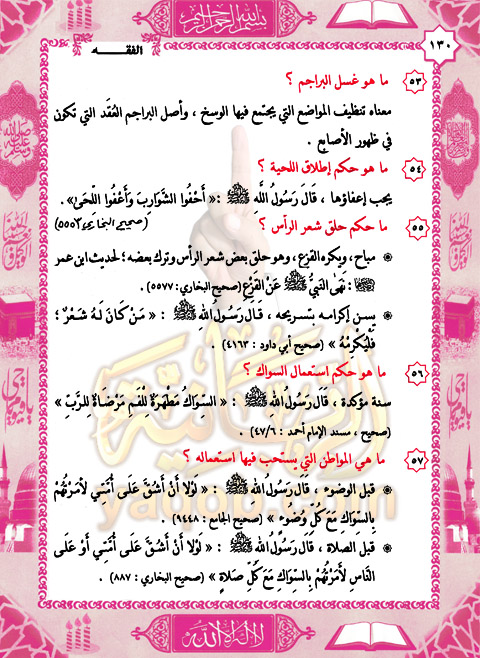 بسم الله الرحمن الرحيم
١٣٠
الفقه
٥٣ ما هو غسل البراجم ؟
معناه تنظيف المواضع التي يجتمع فيها الوسخ ، وأصل البراجم العُقَد التي تكون
في ظهور الأصابع .
٥٤ ما هو حكم إطلاق اللحية ؟
يجب إعفاؤها ، قَالَ رَسُولُ اللَّهِ ﷺ : « أَحْفُوا الشَّوَارِبَ وَأَعْفُوا اللِّحَىٰ».
(صحيح البخاري ٥٥٥٣)
٥٥ ما حكم حلق شعر الرأس ؟
مباح، ويكره القزع ، وهو حلق بعض شعر الرأس وترك بعضه ؛ لحديث ابن عمر
: نَهَى النَّبِيُّ ﷺ عَنْ القَزَعِ (صحيح البخاري: ٥٥٧٧).
يسن إكرامه بتسريحه ، قَالَ رَسُولُ اللهِ ﷺ : « مَنْ كَانَ لَهُ شَعْرٌ ؛
فَلْيُكْرِمْهُ » (صحيح أبي داود : ٤١٦٣)
٥٦ ما هو حكم استعمال السواك ؟
سنة مؤكدة ، قَالَ رَسُولُ اللهِ ﷺ : « السِّوَاكُ مَطْهَرَةٌ لِلْفَمِ مَرْضَاةٌ لِلرَّبِّ »
(صحيح ، مسند الإمام أحمد : ٤٧/٦)
٥٧ ما هي المواطن التي يستحب فيها استعماله ؟
قبل الوضوء ، قَالَ رَسُولُ الله ﷺ : « لَوْلَا أَنْ أَشُقَّ عَلَى أُمَّتِي لَأَمَرْتُهُمْ
بِالسِّوَاكِ مَعَ كُلِّ وُضُوءٍ » (صحيح الجامع : ٩٤٤٨)
قبل الصلاة ، قَالَ رَسُولُ الله ﷺ : « لَوْلَا أَنْ أَشُقَّ عَلَى أُمَّتِي أَوْ عَلَى
النَّاسِ لَأَمَرْتُهُمْ بِالسِّوَاكِ مَعَ كُلِّ صَلَاةٍ » (صحيح البخاري : ٨٨٧)
لا إله إلا الله